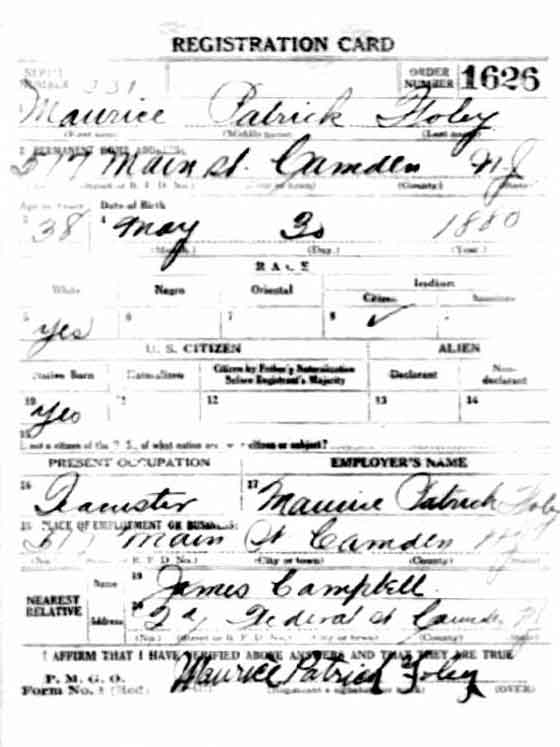 REGISTRATION CARD
SERIAL NUMBER 331 ORDER NUMBER 1626
Maurice Patrick Foley
(First name) (Middle name) (Last name)
PERMANENT HOME ADDRESS:
577 Main St. Camden N.J.
(City or town) (County) (State)
Age in Years Date of Birth
38 4 May 30 1880
(Month.) (Day.) (Year.)
RACE
White Negro Oriental Indian
Citizen
5 6 7 8 ✓
Yes
U. S. CITIZEN ALIEN
Native Born Naturalized Citizen by Father's Naturalization Before Registrant's Majority Declarant Non-declarant
10 12 13 14
Yes
not a citizen of the U. S., of what nation are you a citizen or subject?
PRESENT OCCUPATION EMPLOYER'S NAME
16 Teamster 17 Maurice Patrick Foley
PLACE OF EMPLOYMENT OR BUSINESS:
577 Main St Camden NJ
(No.) R. F. D. No.) (City or town) (County) (State)
NEAREST RELATIVE Name 19 James Campbell
Address 20 Federal St
(No.) (Street or R. F. D. No.) (City or town) (County) (State)
I AFFIRM THAT I HAVE VERIFIED ABOVE ANSWERS AND THAT THEY ARE TRUE
P. M. G. O.
Form No. 1 (Red) Maurice Patrick Foley
(Registrant's signature or mark) (OVER)